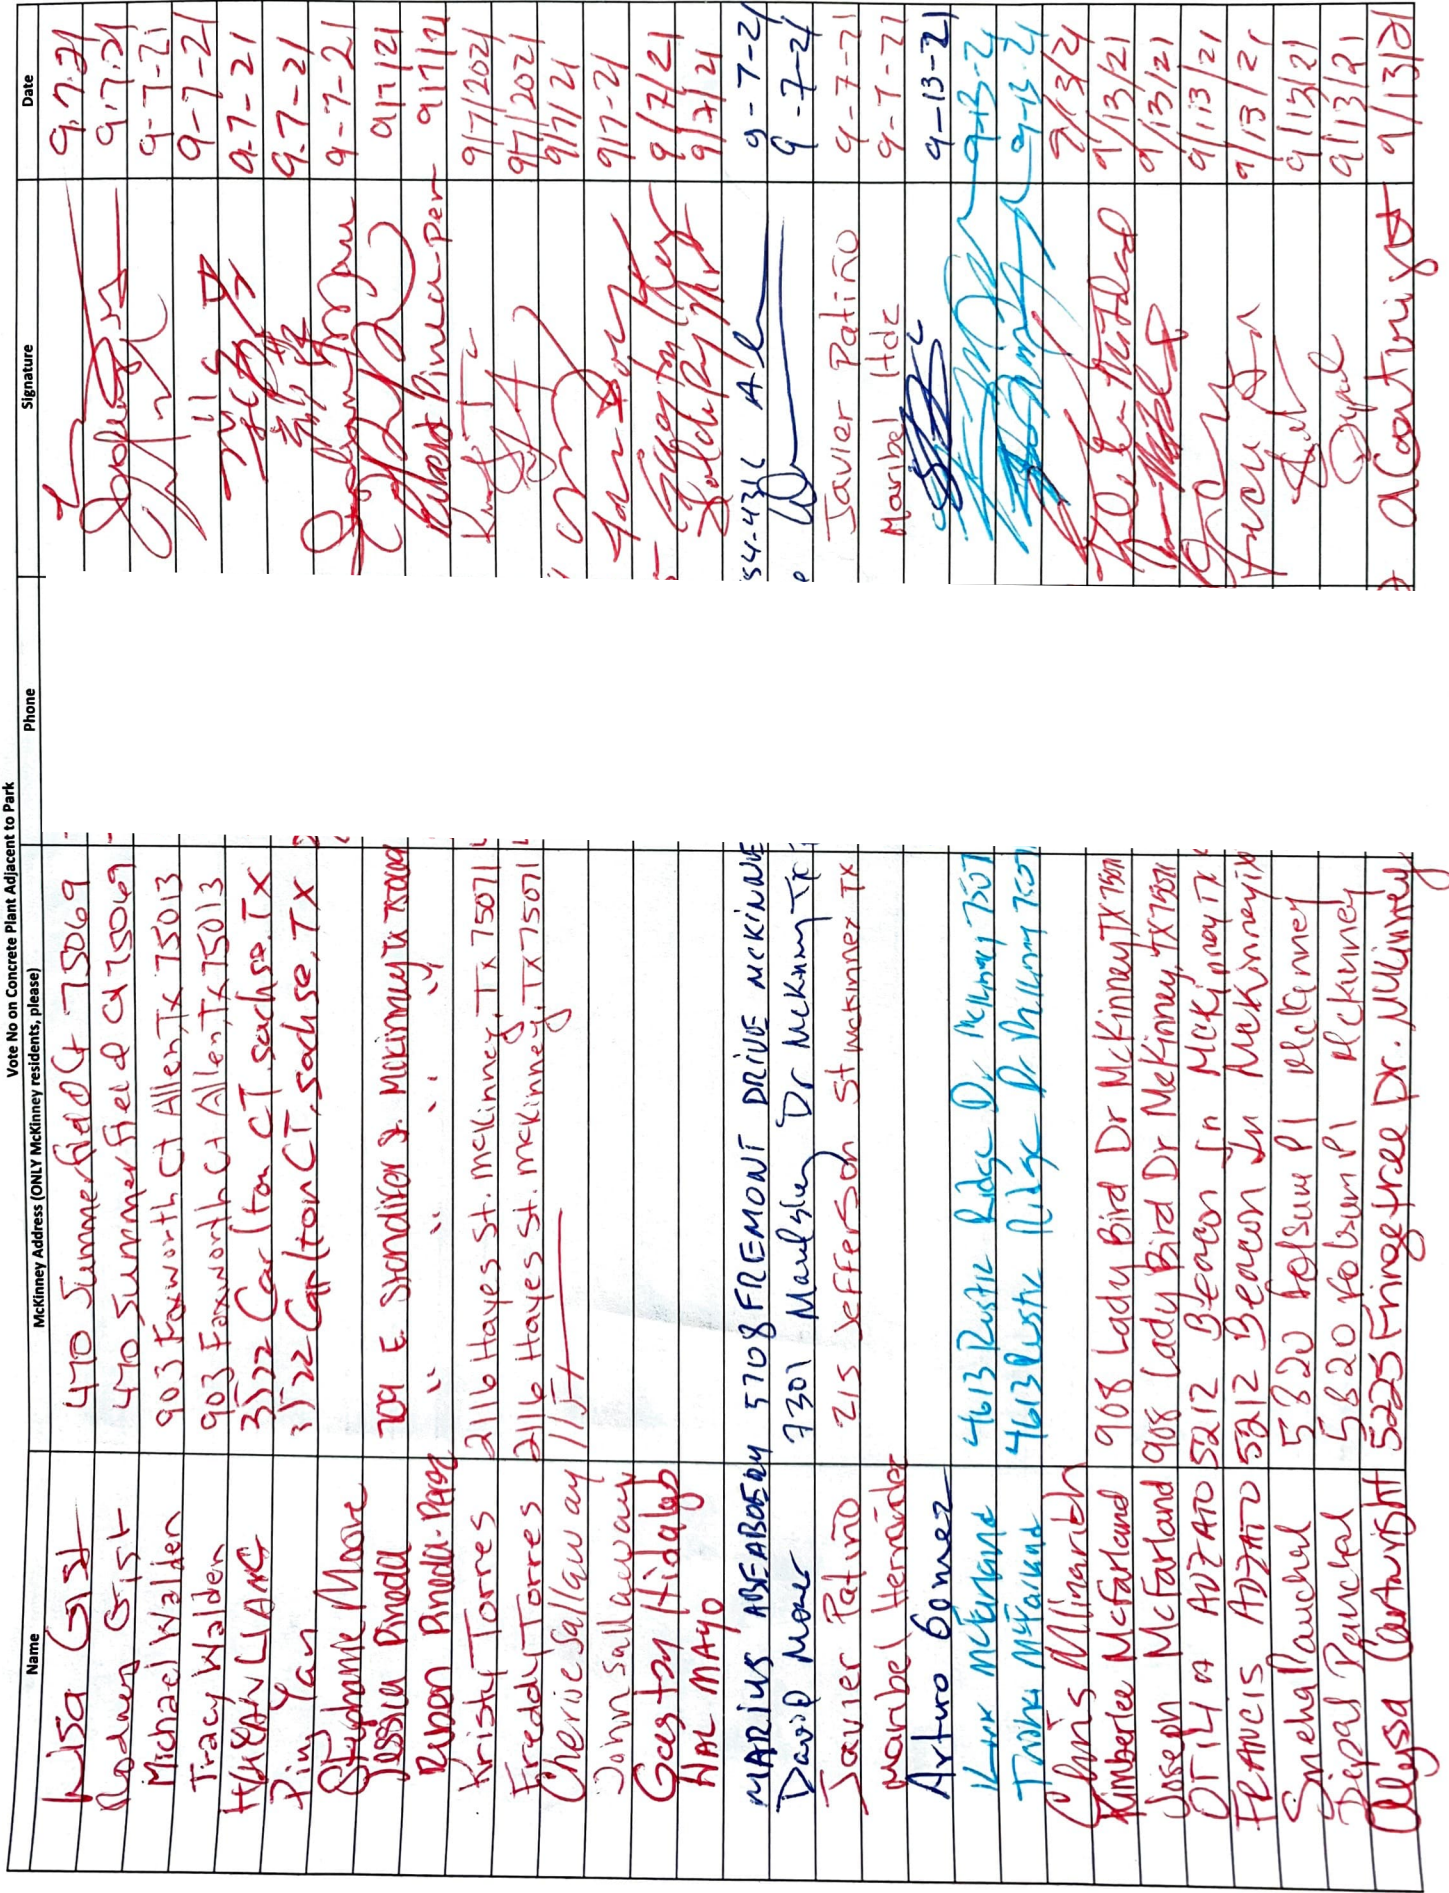 Vote No on Concrete Plant Adjacent to Park
Name McKinney Address (ONLY McKinney residents, please) Phone Signature Date
Lisa Gist 470 Summerfield Ct 75069 9.7.21
Rodney Gist 470 Summerfield Ct 75069 9.7.21
Michael Walden 903 Foxworth Ct Allen, TX 75013 9-7-21
Tracy Walden 903 Foxworth Ct Allen, TX 75013 9-7-21
LIANG 3522 Carlton CT, sachse, TX 9-7-21
Ping Yan 3522 Carlton CT, sachse, TX 9-7-21
Stephanie Moore 9-7-21
Jessica Pineda 709 E. Standifer St. McKinney Tx 75069 9/7/21
Ruben Pineda-Perez " " " " 9/7/21
Kristy Torres 2116 Hayes St. McKinney, TX 75071 9/7/2021
Freddy Torres 2116 Hayes St. McKinney, TX 75071 9/7/2021
Cherise Sallaway 9/7/21
John Sallaway 9/7-21
Gaeston Hidalgo 9/7/21
HAL MAYO 9/7/21
MARIUS 5708 FREMONT DRIVE MCKINNE 54-431 9-7-21
David 7301 Dr McKinney Tx 9-7-21
Javier Patiño 215 Jefferson St McKinney TX Javier Patiño 9-7-21
Maribel Hernandez Maribel Hdz 9-7-21
Arturo Gomez 9-13-21
Kirk McFarland 4613 Rustic Ridge Dr McKinney 7507 9-13-21
McFarland 4613 Rustic Ridge Dr McKinney 7507 9-13-21
Chris Millinarich 9/13/21
Kimberlee McFarland 908 Lady Bird Dr McKinney TX 75071 9/13/21
Joseph McFarland 908 Lady Bird Dr McKinney, TX 75071 9/13/21
ADZATO 5212 Beacon Ln McKinney TX 9/13/21
FRANCIS ADZATO 5212 Beacon Ln McKinney 9/13/21
Sneha Panchal 5820 Folsum Pl McKinney 9/13/21
Dipal Panchal 5820 Folsum Pl McKinney Dipal 9/13/21
Alysa Cartwright 5225 Fringetree Dr. McKinney a Cartwright 9/13/21